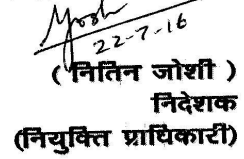 Joshi
22-7-16
( नितिन जोशी )
निदेशक
(नियुक्ति प्राधिकारी)